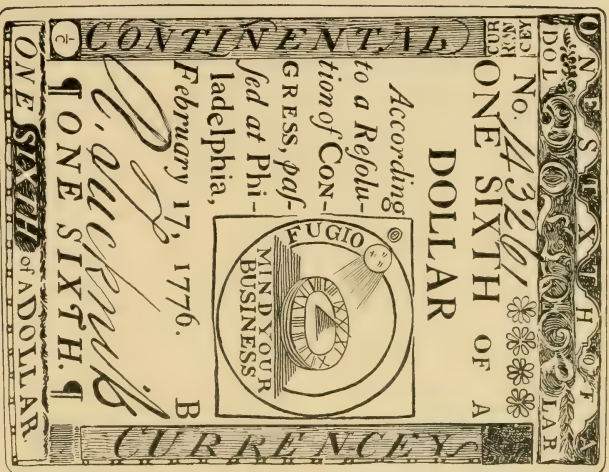 ONE SIXTH OF A
DOL LAR
CUR
REN
CEY
No. 143261
ONE SIXTH OF A
DOLLAR
According
to a Reſolu-
tion of CON-
GRESS, paſ-
ſed at Phi-
ladelphia,
February 17, 1776.
B
FUGIO
MIND YOUR
BUSINESS
¶ ONE SIXTH. ¶
CONTINENTAL
CURRENCEY
ONE SIXTH OF A DOLLAR.